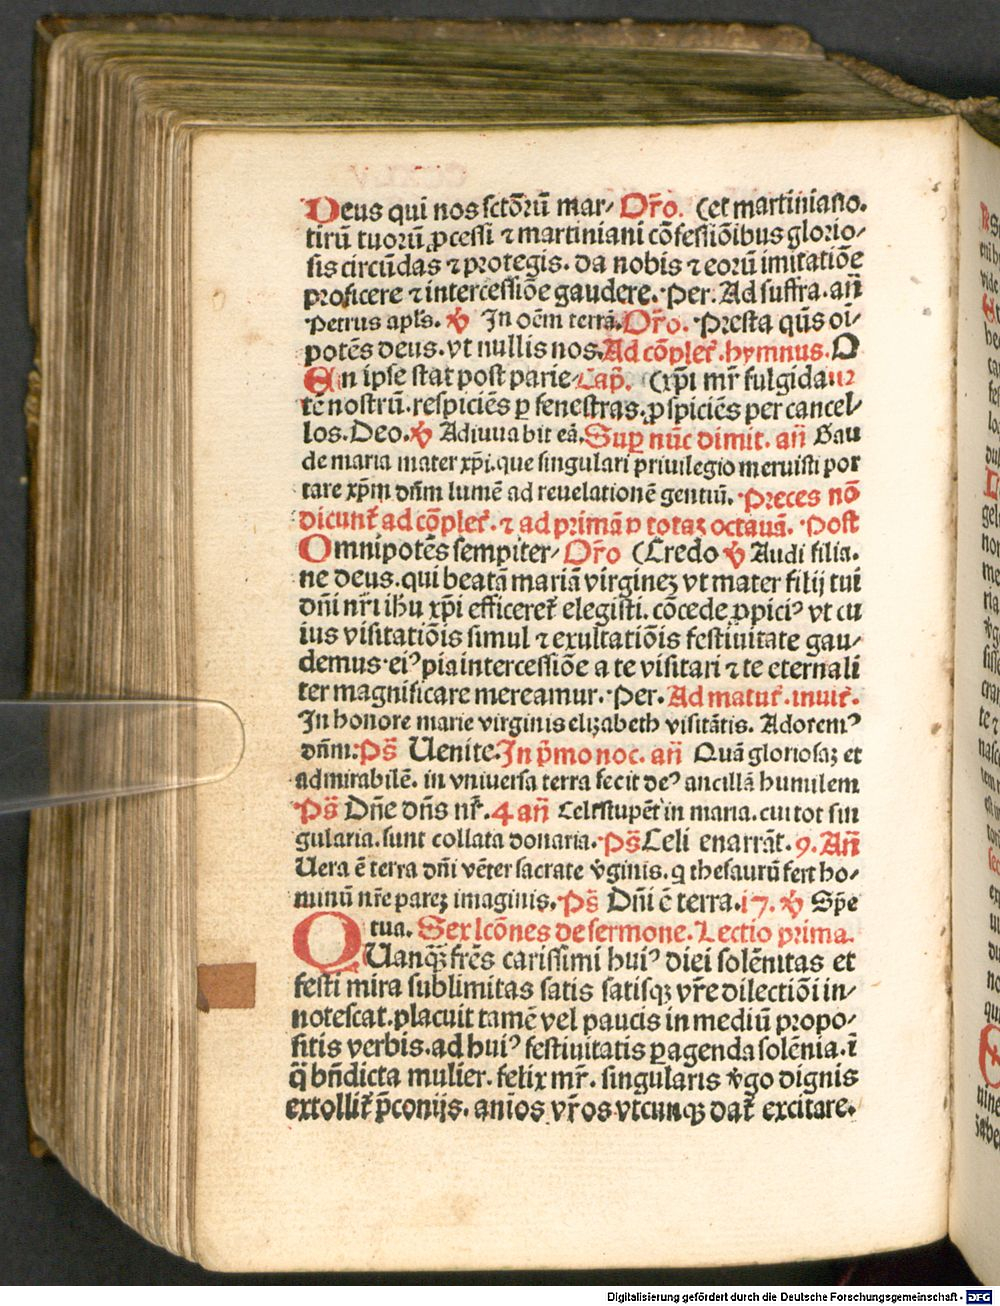 Deus qui nos sctõrũ mar⸗ Or̃o. (et martiniano.
tirũ tuorũ ꝓcessi ⁊ martiniani cõfessiõibus glorio⸗
sis circũdas ⁊ protegis. da nobis ⁊ eorũ imitatiõe
proficere ⁊ intercessiõe gaudere. Per. Ad suffra. an̄
Petrus apls̃. ℣ In oẽm terrã. Or̃o. Presta qũs oi⸗
potẽs deus. vt nullis nos. Ad cõplet̃. hymnus. O
En ipse stat post parie⸗ Cap̃. (xp̃i mr̃ fulgida ur
tẽ nostrũ. respiciẽs ꝑ fenestras. ꝓspiciẽs per cancel⸗
los. Deo. ℣ Adiuuabit eã. Suꝑ nũc dimit. an̄ Gau
de maria mater xp̃i. que singulari priuilegio meruisti por
tare xp̃m dñm lumẽ ad reuelationẽ gentiũ. Preces nõ
dicunt̃ ad cõplet̃. ⁊ ad primã ꝑ totaꝫ octauã. Post
Omnipotẽs sempiter⸗ Or̃o (Credo ℣ Audi filia.
ne deus. qui beatã mariã virgineꝫ vt mater filij tui
dñi nr̃i ihu xp̃i efficeret̃ elegisti. cõcede ꝓpiciꝰ vt cu
ius visitatiõis simul ⁊ exultatiõis festiuitate gau⸗
demus. eiꝰ pia intercessiõe a te visitari ⁊ te eternali
ter magnificare mereamur. Per. Ad matut̃. inuit̃.
In honore marie virginis elizabeth visitãtis. Adoremꝰ
dñm. Ps̃ Uenite. In p̃mo noc. an̄ Quã gloriosaꝫ et
admirabilẽ. in vniuersa terra fecit deꝰ ancillã humilem
Ps̃ Dñe dñs nr̃. 4 an̄ Celestupẽt in maria. cui tot sin
gularia. sunt collata donaria. Ps̃ Celi enarrãt. 9. An̄
Uera ẽ terra dñi vẽter sacrate v̾ginis. q thesaurũ fert ho⸗
minũ nr̃e pareꝫ imaginis. Ps̃ Dñi ẽ terra. 17. ℣ Sp̃e
tua. Sex lcõnes de sermone. Lectio prima.
QUanq̃ꝫ fr̃es carissimi huiꝰ diei solẽnitas et
festi mira sublimitas satis satisqꝫ vr̃e dilectiõi in⸗
notescat. placuit tamẽ vel paucis in mediũ propo⸗
sitis verbis. ad huiꝰ festiuitatis ꝑagenda solẽnia. ĩ
q̃ bñdicta mulier. felix mr̃. singularis v̾go dignis
extollit̃ p̃conijs. anios vr̃os vtcunqꝫ dat̃ excitare.
Digitalisierung gefördert durch die Deutsche Forschungsgemeinschaft - DFG